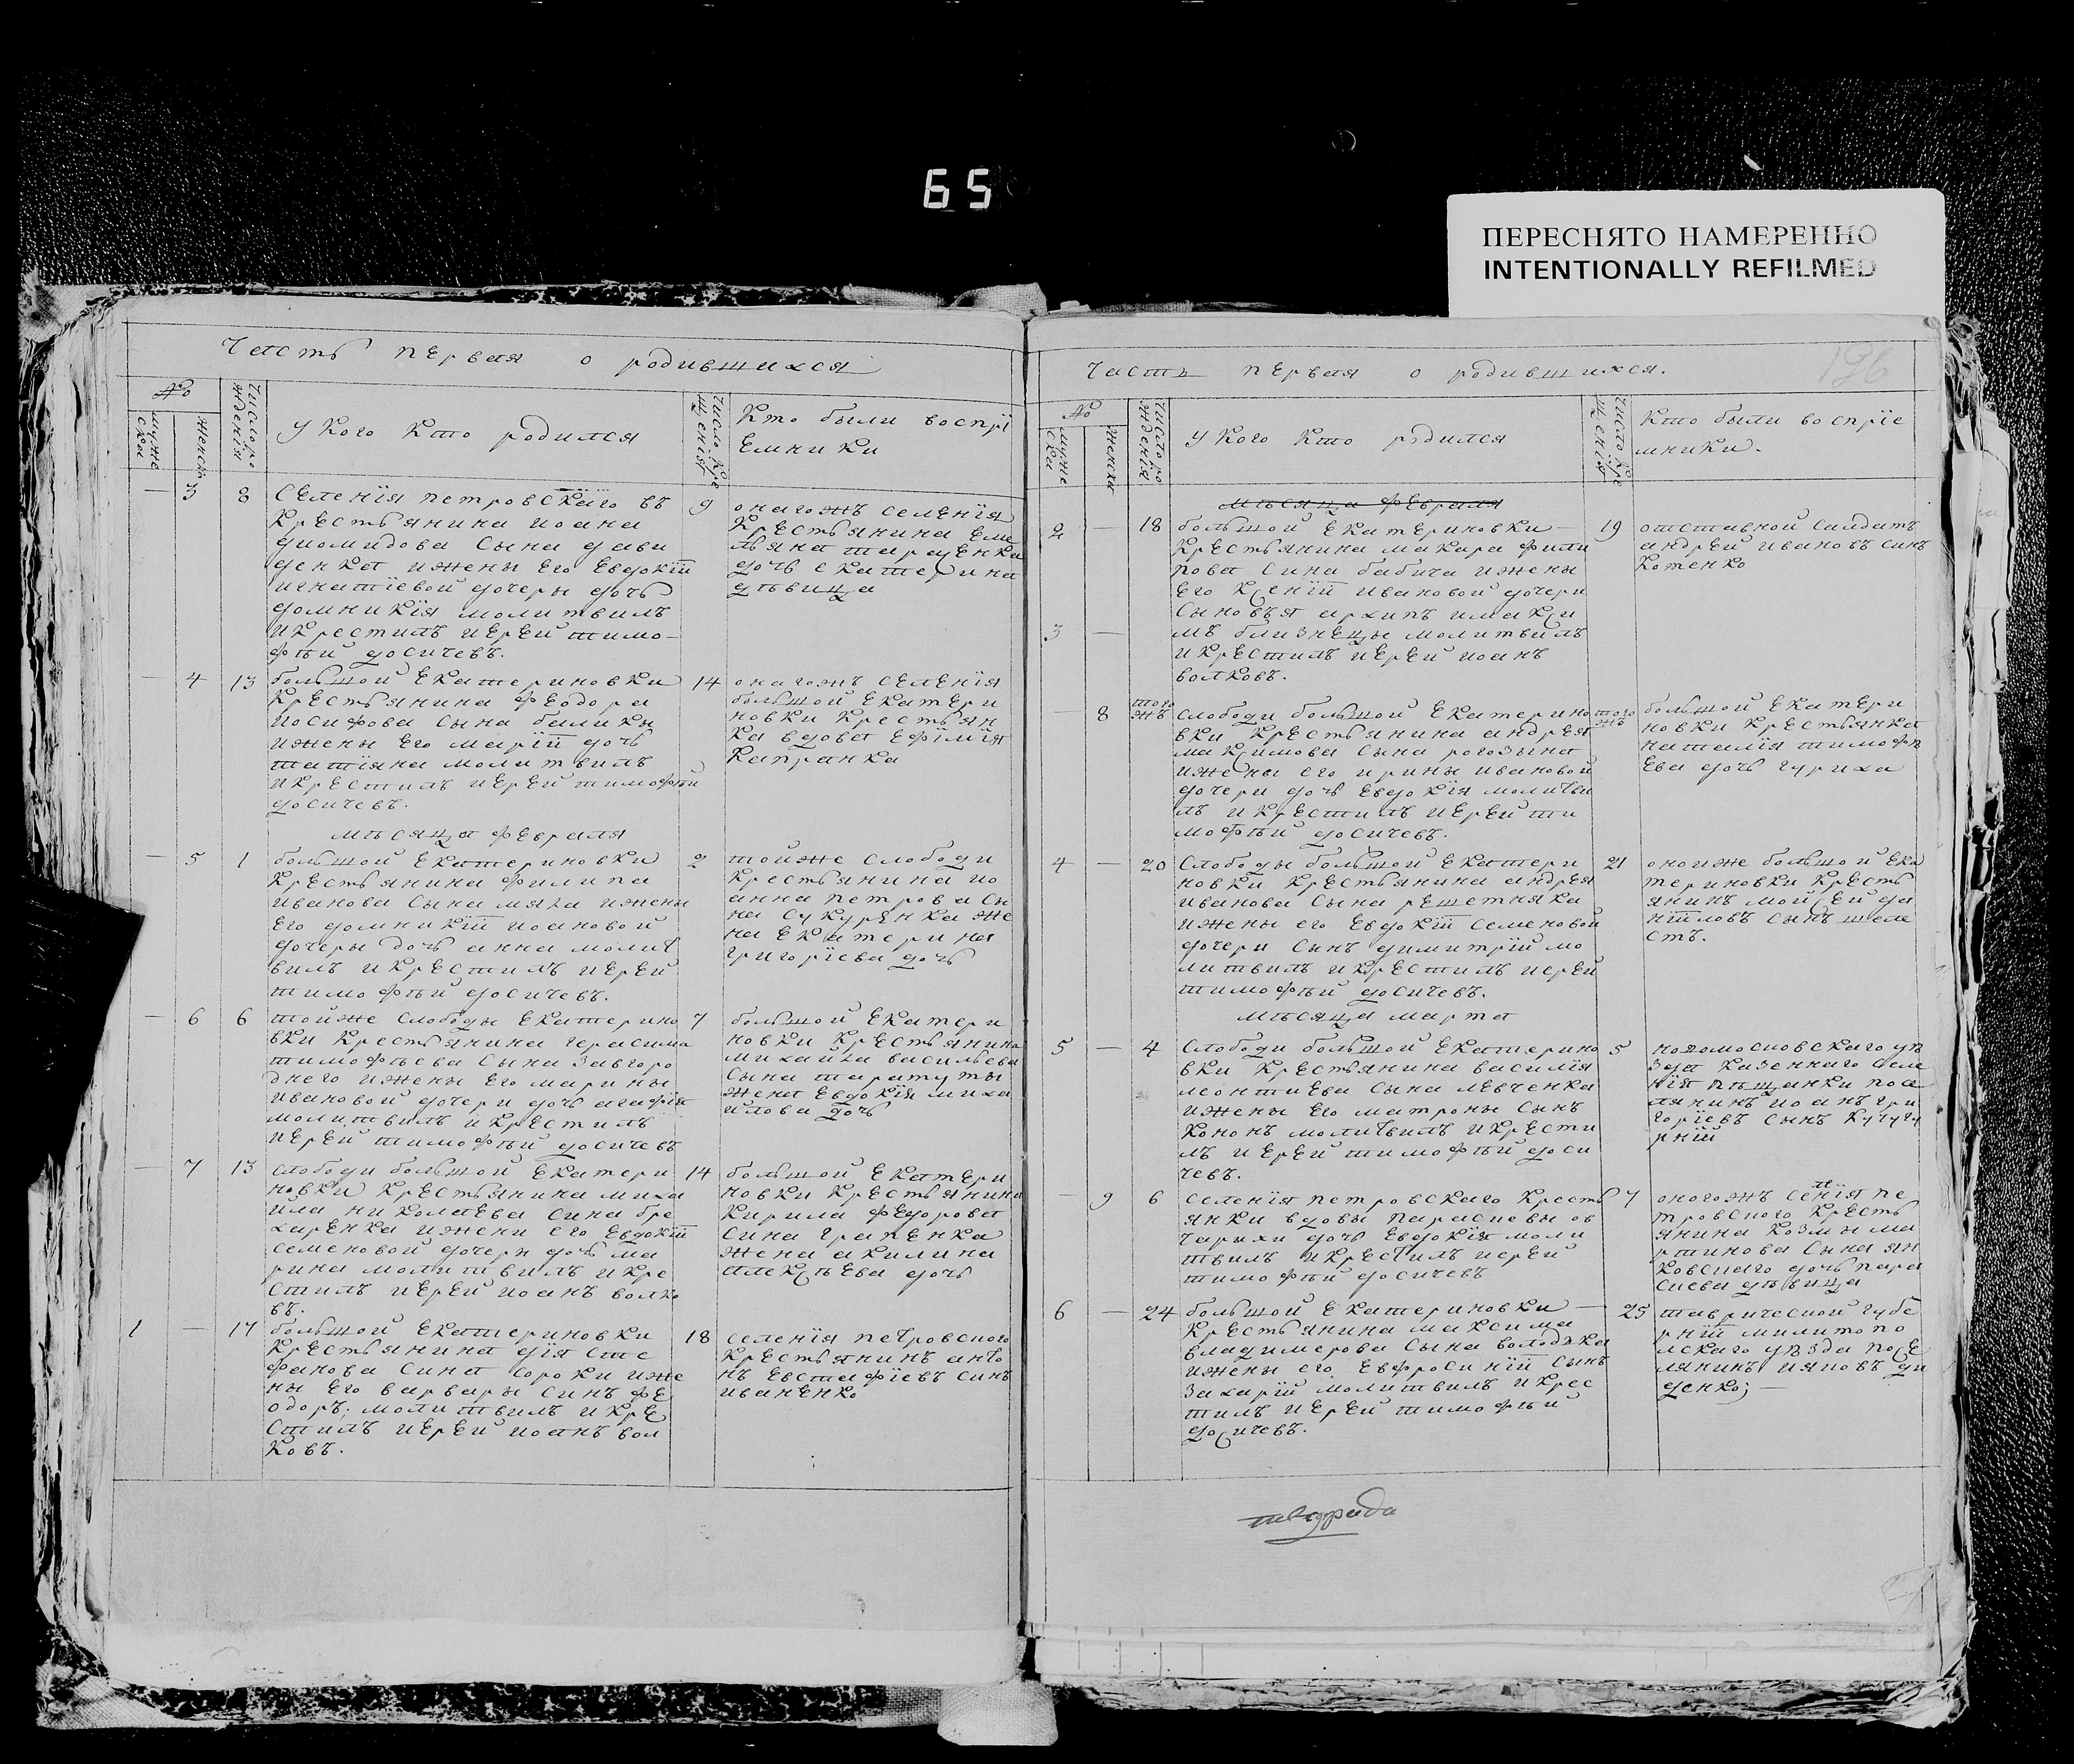 65
ПЕРЕСНЯТО НАМЕРЕННО
INTENTIONALLY REFILMED
Часть первая о родившихся
№
муже
ска
женск
число ро
жденія
У кого кто родился
число кре
щенія
Кто были воспрі
емники
— 3 8
селенія петровскаго въ
крестьянина иоана
диомидова сына дави
денка ижены его евдокіи
игнатіевой дочеры дочь
домникія молитвилъ
икрестилъ иерей тимо-
фѣй досичевъ.
9
онагожъ селенія
крестьянина еме
льяна тараценка
дочь екатерина
дѣвица
— 4 13
большой екатериновки
крестьянина феодора
иосифова сына балики
ижены его маріи дочь
татіяна молитвилъ
икрестилъ иерей тимофѣй
досичевъ.
14
онагожъ селенія
большой екатери
новки крестьян
ка вдова ефімія
капранка
мѣсяца февраля
— 5 1
большой екатериновки
крестьянина филипа
иванова сына мяха ижены
его домникіи иоановой
дочеры дочь анна молит
вилъ икрестилъ иерей
тимофѣй досичевъ.
2
тойже слободи
крестьянина ио
анна петрова сы
на сукуренка же
на екатерина
григоріева дочь
— 6 6
тойже слободы екатерино
вки крестьянина герасима
тимофѣева сына завгоро
днего ижены его марины
ивановой дочери дочь агафія
молитвилъ икрестилъ
иерей тимофѣй досичевъ
7
большой екатери
новки крестьянина
михайла васильева
сына таратуты
жена евдокія миха
йлова дочь
— 7 13
слободи большой екатери
новки крестьянина миха
ила николаева сина бре
харенка ижени его евдокіи
семеновой дочери дочь ма
рина молитвилъ икре
стилъ иерей иоанъ волко
въ.
14
большой екатери
новки крестьянина
кирила федорова
сина грапенка
жена акилина
алексѣева дочь
1 — 17
большой екатериновки
крестьянина дія сте
фанова сина сороки иже
ны его варвары синъ фе
одоръ; молитвилъ икре
стилъ иерей иоанъ вол
ковъ.
18
селенія петровского
крестьянинъ анто
нъ евстафіевъ синъ
иваненко
Часть первая о родившихся.
196
№
муже
ска
женска
число ро
жденія
У кого кто родился
число кре
щенія
Кто были воспріе
мники.
мѣсяца февраля
2 — 18
большой екатериновки —
крестьянина макара фили
пова сина бабича ижены
его ксеніи ивановой дочери
сыновья архипъ имакси
3 —
мъ близнецы молитвилъ
икрестилъ иерей иоанъ
волковъ.
19
отставной салдатъ
андрей ивановъ синъ
котенко
— 8 того
жъ
слободи большой екатерино
вки крестьянина андрея
максимова сына рогозына
ижены его ирины ивановой
дочери дочь евдокія молитви
лъ икрестилъ иерей ти
мофѣй досичевъ.
того
жъ
большой екатери
новки крестьянка
наталія тимофѣ
ева дочь чуриха
4 — 20
слободы большой екатери
новки крестьянина андрея
иванова сына решетняка
ижены его евдокіи семеновой
дочери сынъ димитрій мо
литвилъ икрестилъ иерей
тимофѣй досичевъ.
21
онойже большой ека
териновки кресть
янинъ мойсей да
ніиловъ сынъ шеле
стъ.
мѣсяца марта
5 — 4
слободи большой екатерино
вки крестьянина василія
леонтиева сына левченка
ижены его матроны сынъ
кононъ молитвилъ икрести
лъ иерей тимофѣй доси
чевъ.
5
новомосковскаго уѣ
зда казеннаго селе
нія пѣщанки посе
лянинъ иоанъ гри
горіевъ сынъ кучугу
рній
— 9 6
селенія петровскаго кресть
янки вдовы парасиевы ов
чарихи дочь евдокія моли
твилъ икрестилъ иерей
тимофѣй досичевъ
7
оногожъ сенія пе
ле
тровского кресть
янина козмы ма
ртинова сына ян
ковснаго дочь пара
сиева дѣвица
6 — 24
большой екатериновки —
крестьянина максима
владимерова сына володька
ижены его евфросиніи сынъ
захарій молитвилъ икрес
тилъ иерей тимофѣй
досичевъ.
25
тавричесной губе
рніи милитопо
лскаго уѣзда посе
лянинъ ияковъ ди
денко; —